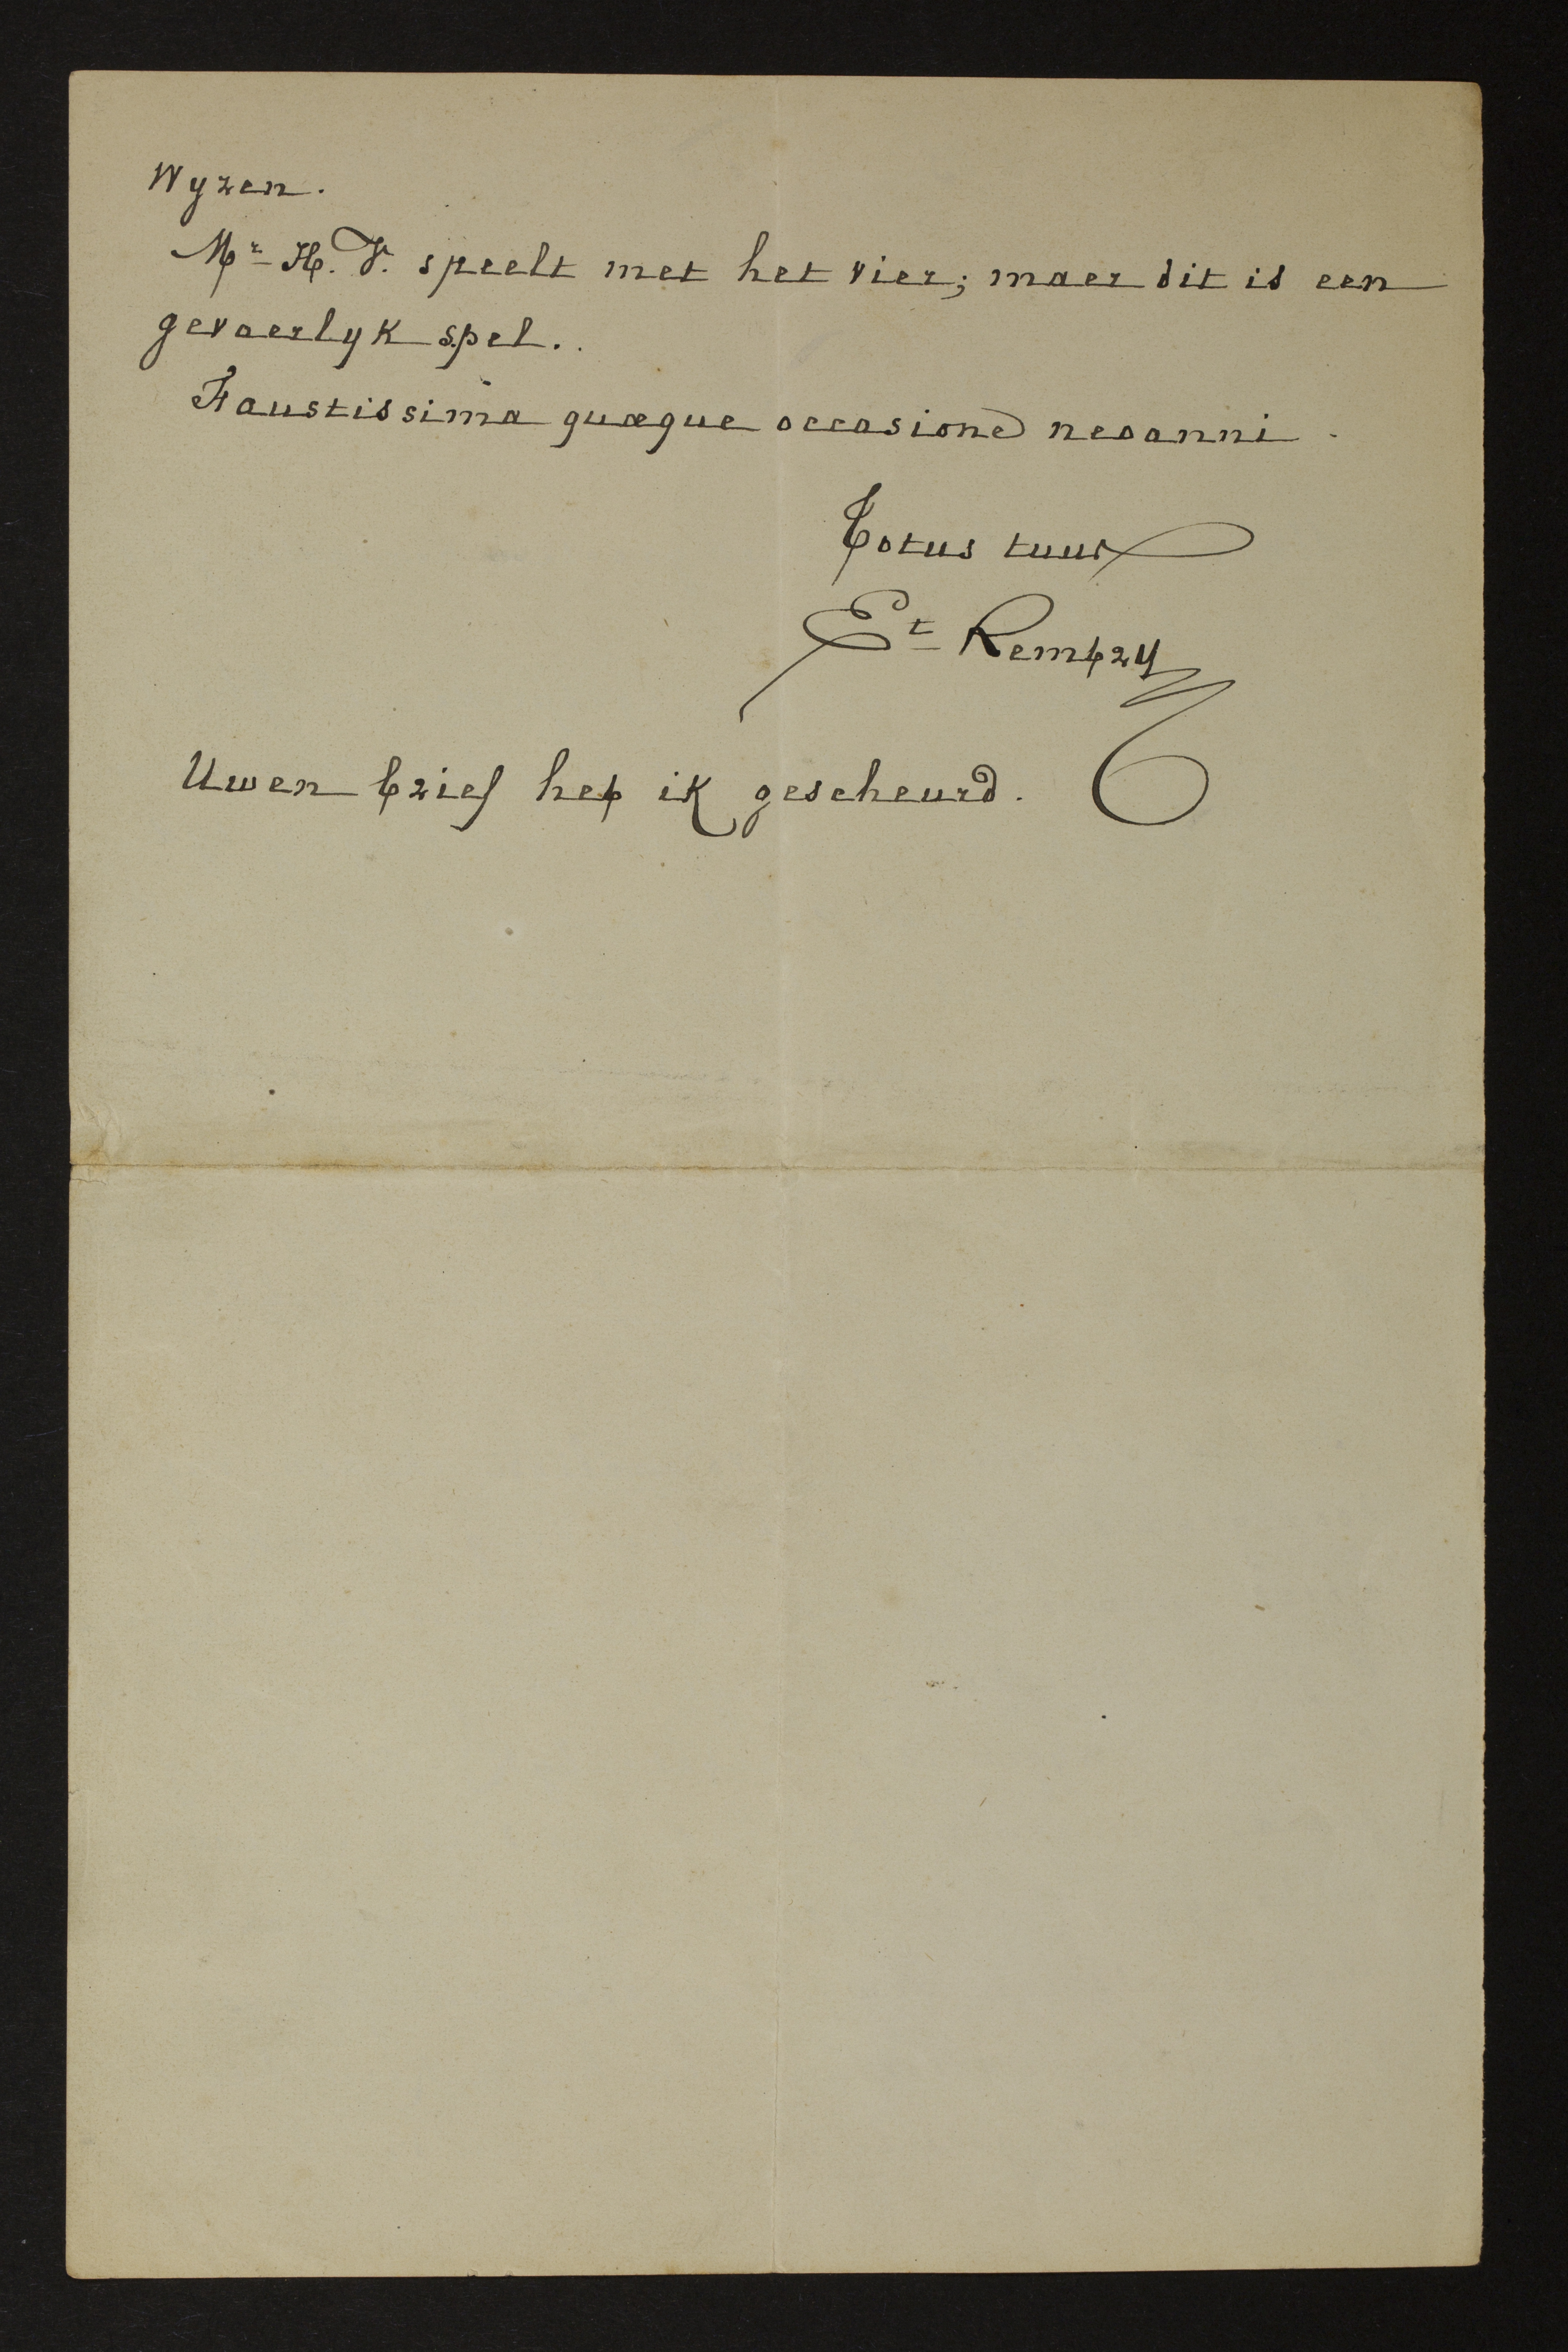 Wyzen.
Mr H. V. speelt met het vier; maer dit is een
gevaerlyk spel.
Faustissima quæque occasione neoanni.
Totus tuus
Et Rembry
Uwen brief heb ik gescheurd.